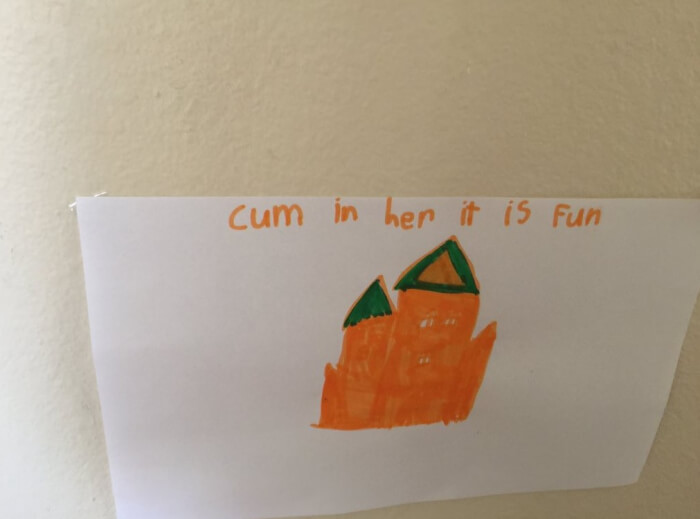 cum in her it is Fun